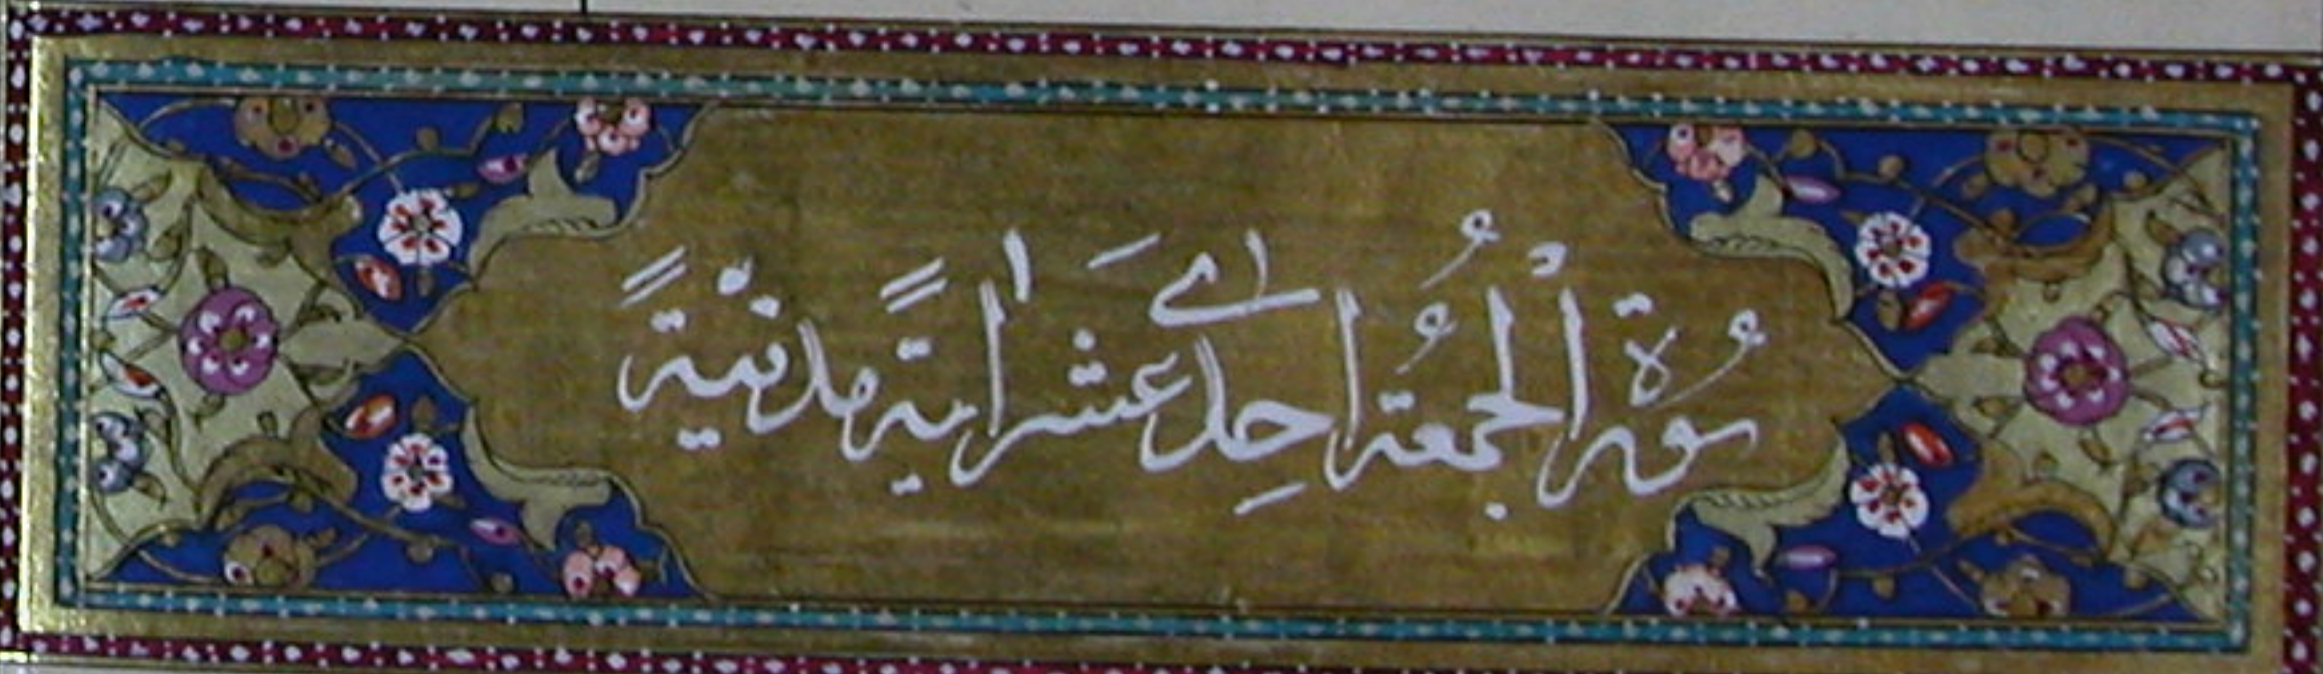 سُورَةُ الْجُمُعَةُ اِحْدٰى عَشَرَ اٰيَةً مَدَنِيَّةً